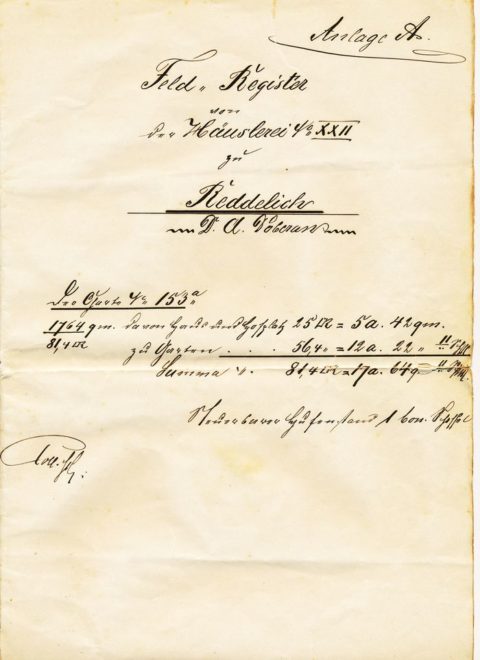 Anlage A.
Feld-Register
von
der Häuslerei № XXII
zu
Reddelich
D. A. Doberan
Der Garte № 153a
1764 qm. davon Haus und Hofplatz 25 □R = 5 a. 42 qm.
81,4 □R zu Garten . . . 56,4 " = 12 a. 22 "
Summa 81,4 □R = 17 a. 64 q
Steuerbarer Hufenstand 1 bon. Scheffel